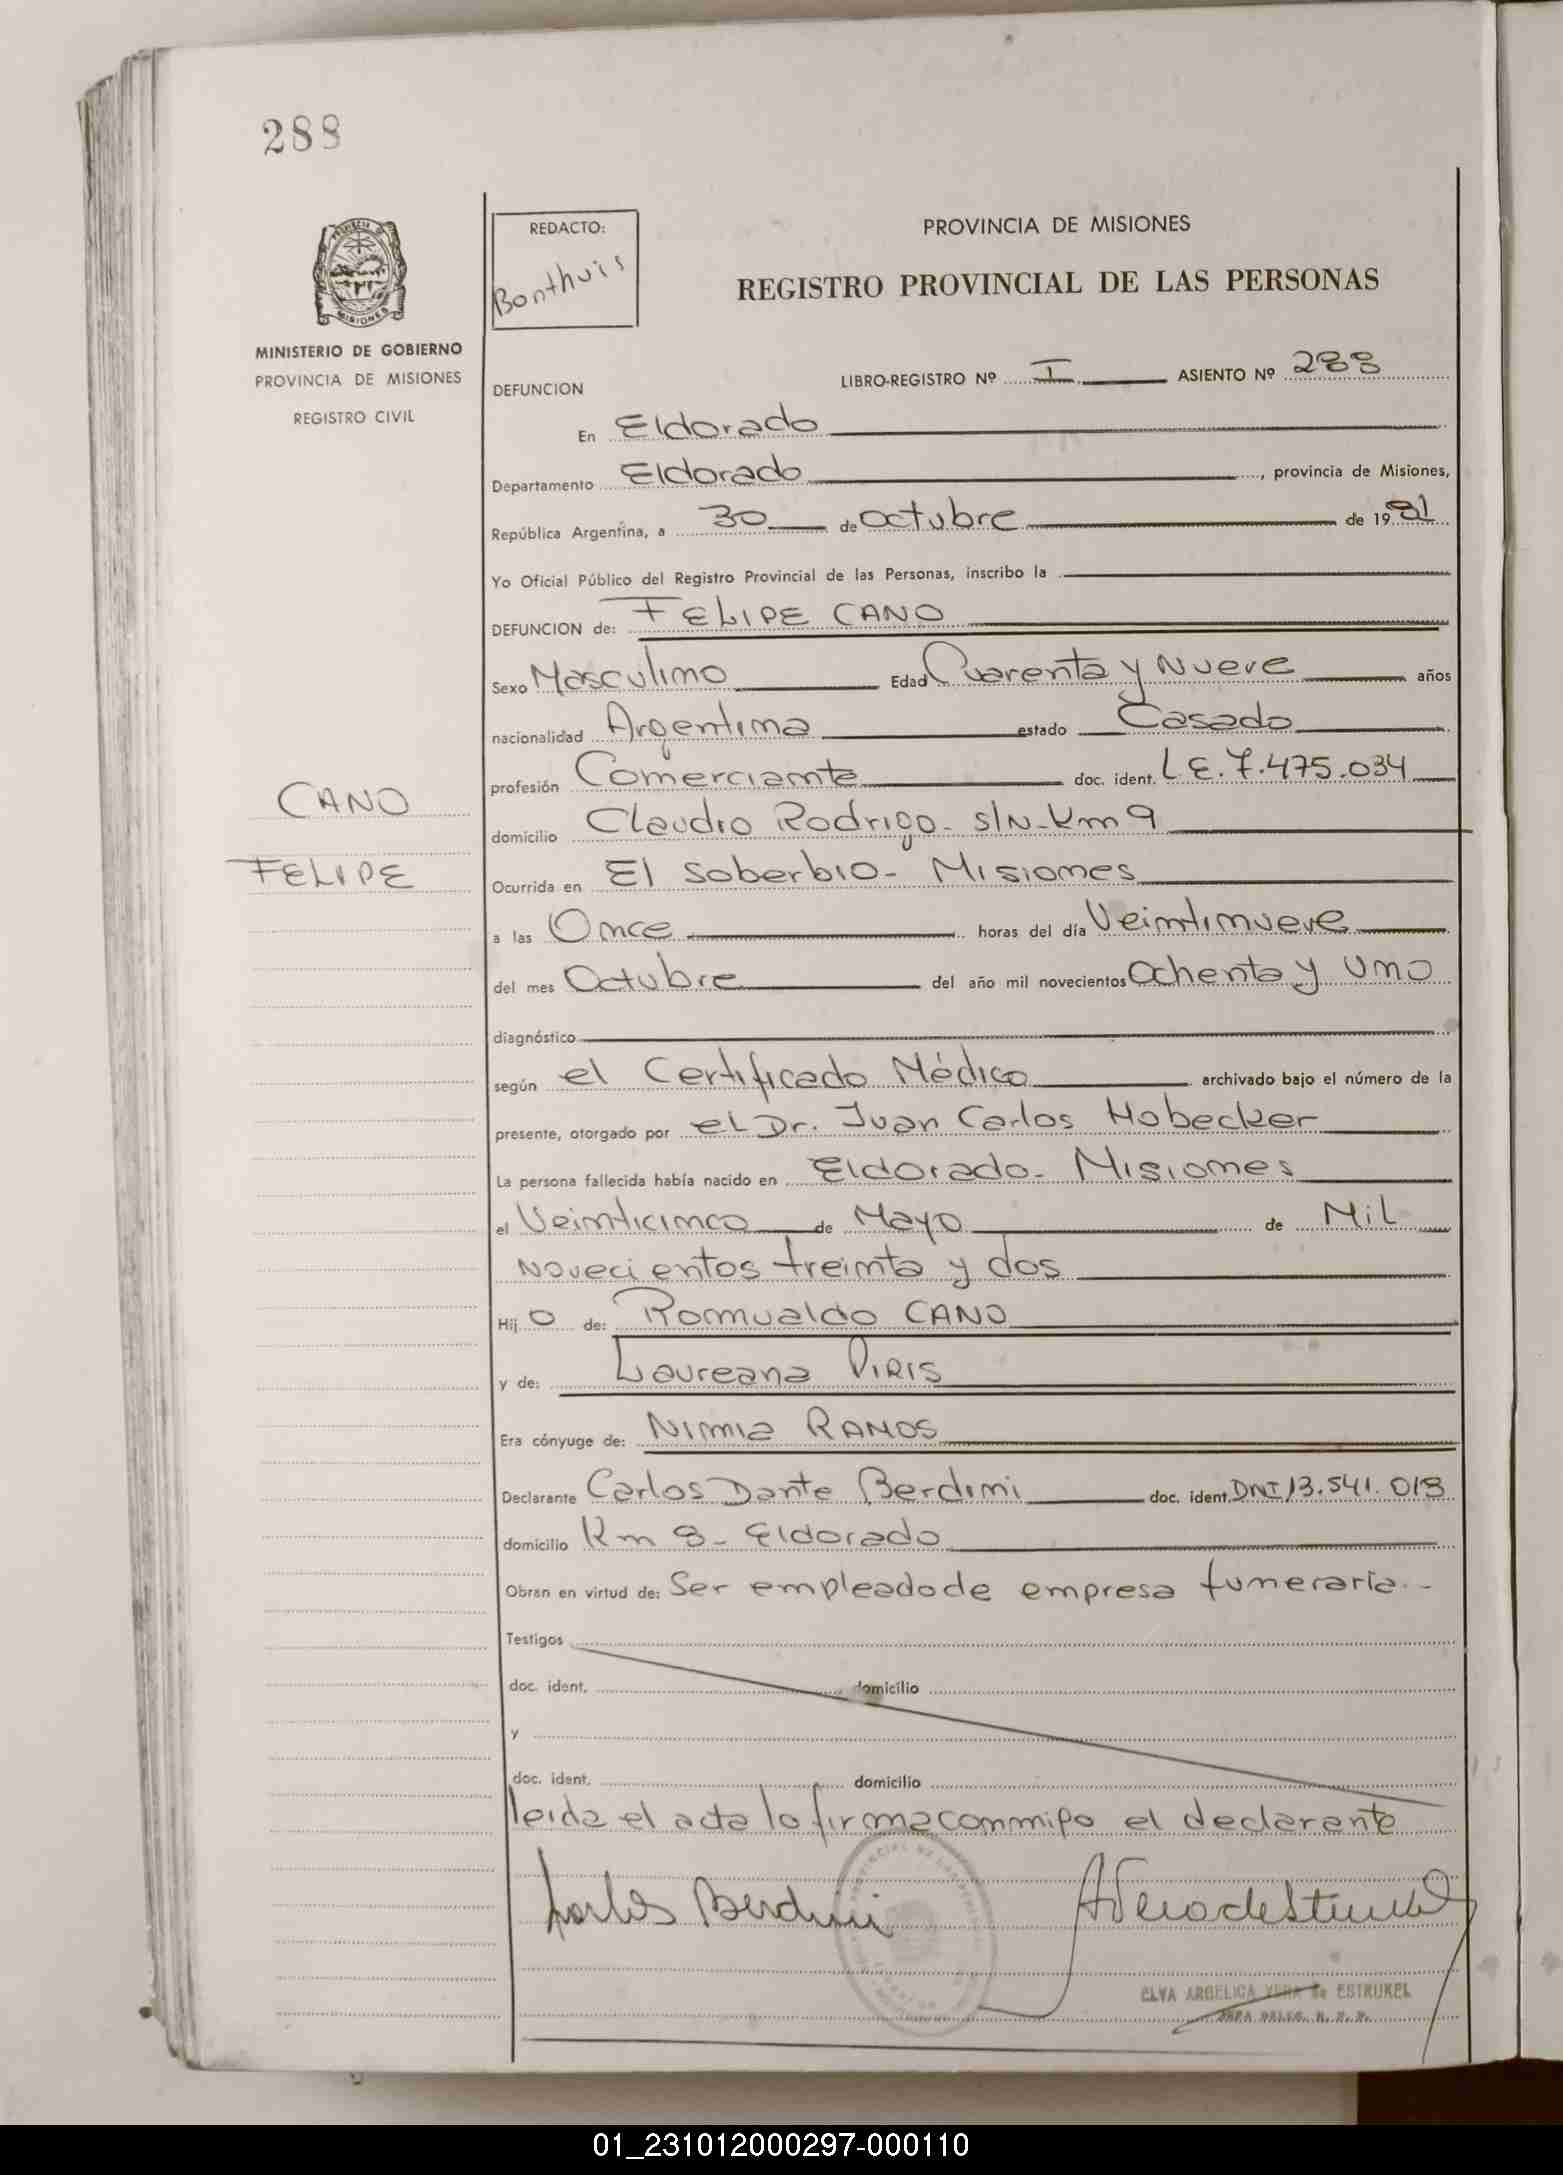 288
REDACTO:
Bonthuis
PROVINCIA DE MISIONES
REGISTRO PROVINCIAL DE LAS PERSONAS
MINISTERIO DE GOBIERNO
PROVINCIA DE MISIONES
REGISTRO CIVIL
DEFUNCION LIBRO-REGISTRO Nº I ASIENTO Nº 288
En Eldorado
Departamento Eldorado, provincia de Misiones,
República Argentina, a 30 de octubre de 1981
Yo Oficial Público del Registro Provincial de las Personas, inscribo la
DEFUNCION de: FELIPE CANO
Sexo Masculino Edad Cuarenta y Nueve años
nacionalidad Argentina estado Casado
profesión Comerciante doc. ident. L.E. 7.475.034
CANO
domicilio Claudio Rodrigo - s/N - Km 9
FELIPE
Ocurrida en El Soberbio - Misiones
a las Once horas del día Veintinueve
del mes Octubre del año mil novecientos Ochenta y uno
diagnóstico
según el Certificado Médico archivado bajo el número de la
presente, otorgado por el Dr. Juan Carlos Hobecker
La persona fallecida había nacido en Eldorado - Misiones
el Veinticinco de Mayo de Mil
Novecientos treinta y dos
Hij o de: Romualdo CANO
y de: Laureana PIRIS
Era cónyuge de: Nimia RAMOS
Declarante Carlos Dante Berdini doc. ident. DNI 13.541.018
domicilio Km 8 - Eldorado
Obran en virtud de: Ser empleado de empresa funeraria.-
Testigos
doc. ident. domicilio
y
doc. ident. domicilio
leida el acta lo firma conmigo el declarante
Carlos Berdini
ELVA ARGELICA VERA de ESTRUKEL
01_231012000297-000110